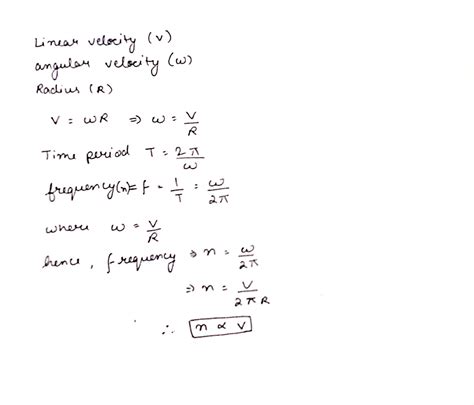 Linear velocity (V)
angular velocity (ω)
Radius (R)
V = ωR ⇒ ω = V/R
Time period T = 2π/ω
frequency(n) = f = 1/T = ω/2π
where ω = V/R
hence, frequency ⇒ n = ω/2π
⇒ n = V/2πR
∴ n ∝ V